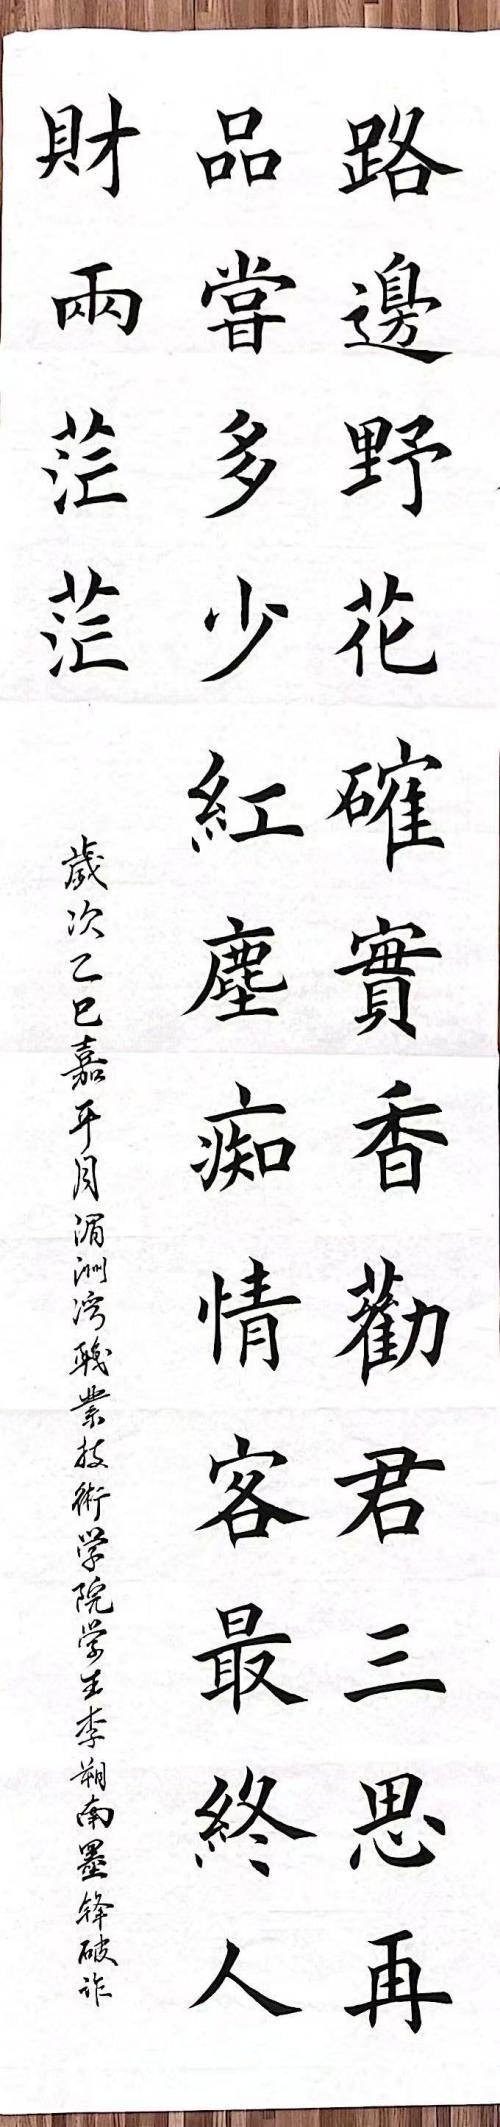 路邊野花確實香勸君三思再
品嘗多少紅塵痴情客最終人
財兩茫茫
歲次乙巳嘉平月湄洲湾職業技術学院学生李朔南墨鋒破詐